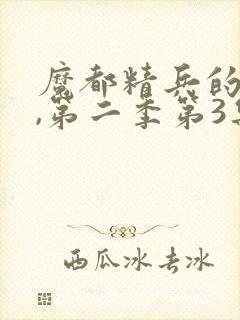 魔都精兵的
,第二季第3集
西瓜冰去冰